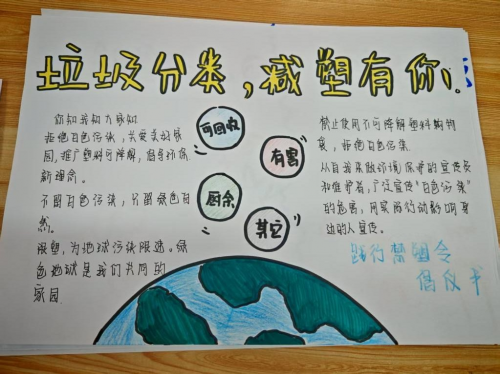 垃圾分类,减塑有你!
你知我知大家知
拒绝白色污染,共爱美好家
园,推广塑料可降解,倡导环保
新理念。
不留白色污染,只留绿色自
然。
限塑,为地球污染限速。绿
色地球是我们共同的
家园
可回收
有害
厨余
其它
禁止使用不可降解塑料购物
袋,拒绝白色污染.
从自我来做环境保护的宣传员
和维护者,广泛宣传"白色污染"
的危害,用实际行动影响身
边的人宣传。
践行禁塑令
倡仪书